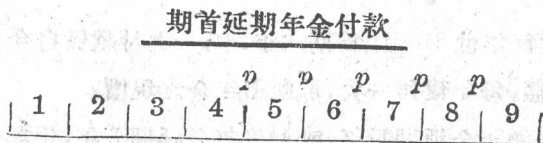 期首延期年金付款
p p p p p
1 2 3 4 5 6 7 8 9